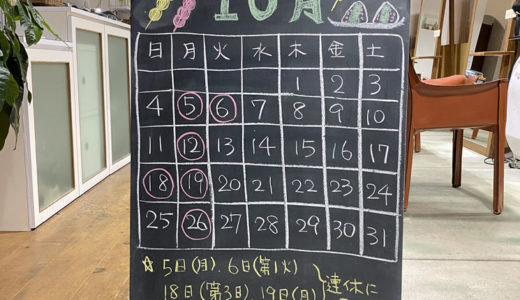 10月
日 月 火 水 木 金 土
1 2 3
4 5 6 7 8 9 10
11 12 13 14 15 16 17
18 19 20 21 22 23 24
25 26 27 28 29 30 31
☆ 5日(月).6日(第1火)
18日(第3日).19日(月)
連休に